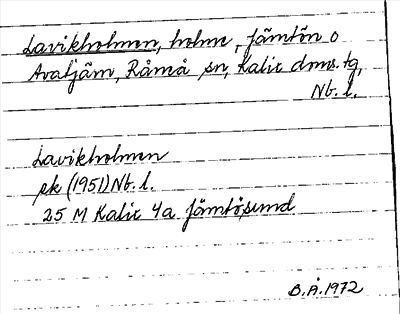 Lavikholmen, holme, Jämtön o
Avatjäm, Råneå sn, Kalix dms. tg,
Nb. l.
Lavikholmen
ek (1951) Nb. l.
25 M Kalix 4a Jämtösund
B.Å. 1972